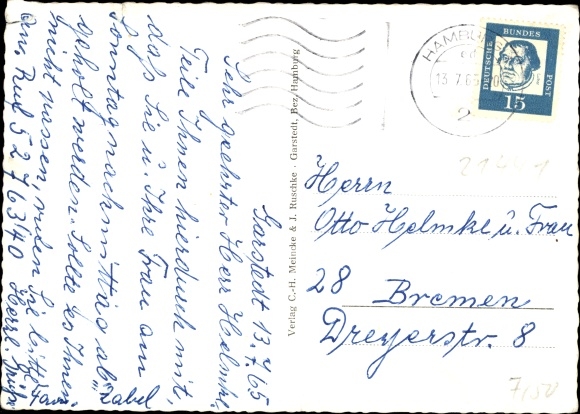 Garstedt 13.7.65
Sehr geehrter Herr Helmke,
Teile Ihnen hierdurch mit,
daß Sie u. Ihre Frau am
Sonntagnachmittag ab
geholt werden. Sollte es Ihnen
nicht passen, rufen Sie bitte
an. Ruf 5276340 Herzl.
Fam. Zabel
Verlag C.-H. Meincke & J. Ruschke · Garstedt, Bez. Hamburg
HAMBURG
13.7.65
2
DEUTSCHE BUNDESPOST
15
Herrn
Otto Helmke u. Frau
28 Bremen
Dreyerstr. 8
7/50